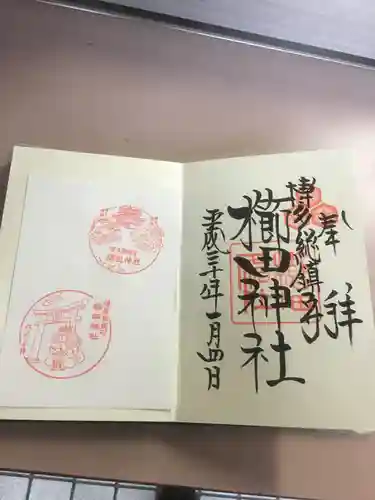 奉拝
博多總鎮守
櫛田神社
平成三十年一月四日